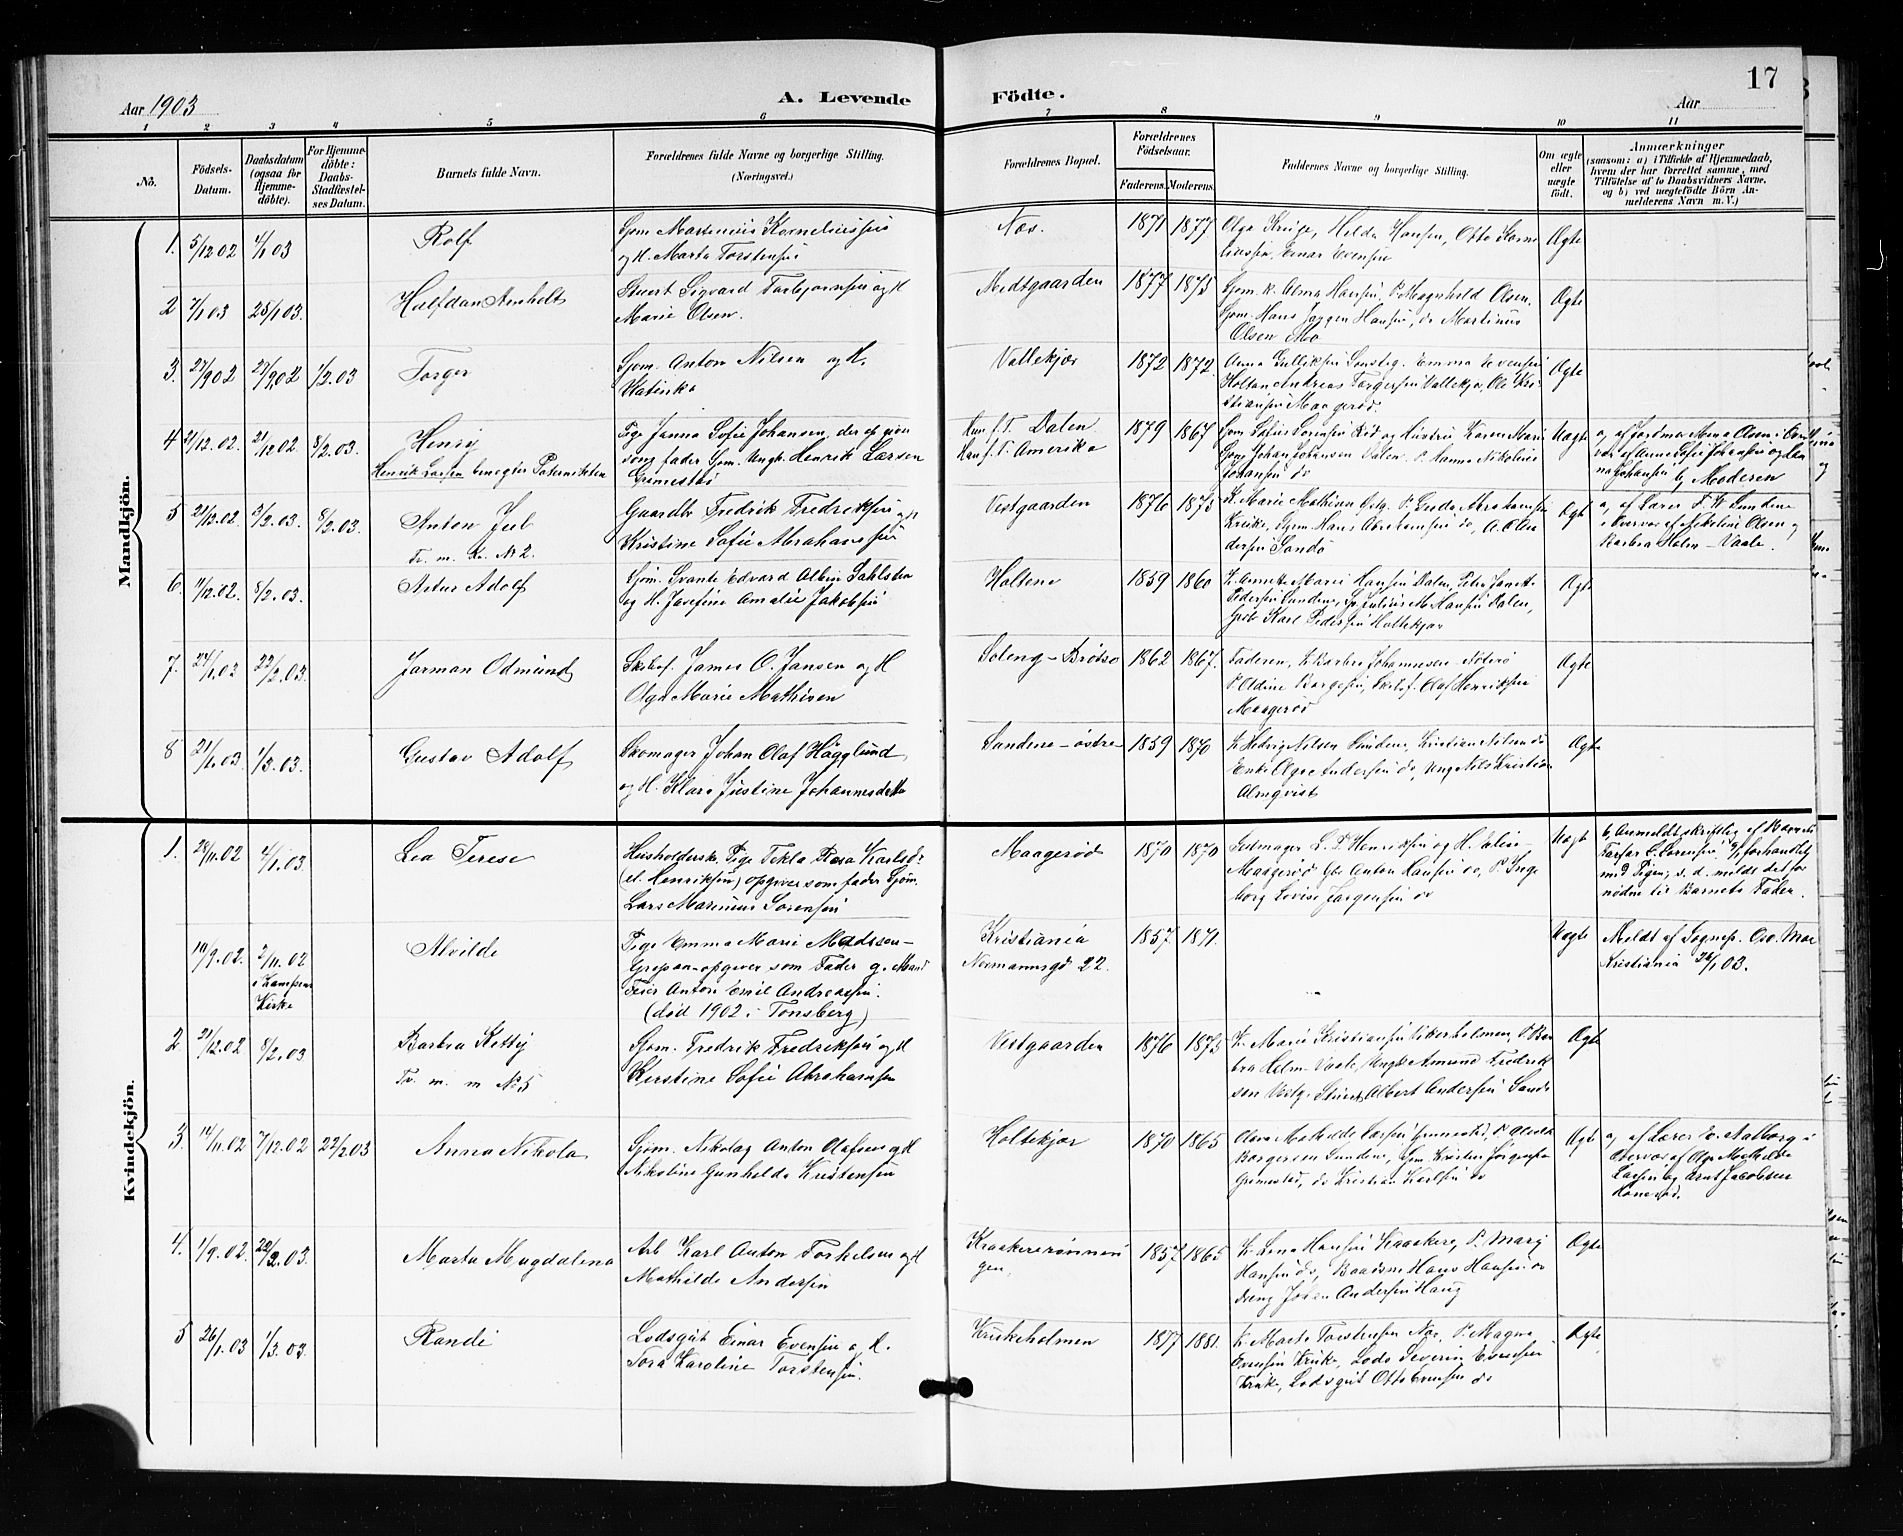 17
Aar 1903
A. Levende Födte.
Aar
1 2 3 4 5 6 7 8 9 10 11
No.
Födsels-Datum.
Daabsdatum (ogsaa for Hjemme-döbte).
For Hjemme-döbte: Daabs-Stadfæstel-ses Datum.
Barnets fulde Navn.
Forældrenes fulde Navne og borgerlige Stilling. (Næringsvei.)
Forældrenes Bopæl.
Forældrenes Födselsaar.
Faderens. Moderens.
Faddernes Navne og borgerlige Stilling.
Om ægte eller uægte födt.
Anmærkninger
(saasom: a) i Tilfælde af Hjemmedaab, hvem der har forrettet samme, med Tilföielse af to Daabsvidners Navne, og b) ved uægtefödte Börn An-melderens Navn m. V.)
Mandkjön.
1. 5/12 02 4/1 03 Rolf
Sjøm Martinius Korneliussen
og H. Marta Torstensen
Næs. 1871 1877
Olga Kruge, Helda Hansen, Otto Korne
liussen, Einar Evensen
Ægte
2 7/1 03 25/1 03. Halfdan Arnholt
Stuert Sigvard Torbjørnsen og H
Marie Olsen.
Medtgaarden 1877 1875
Sjøm. k. Alma Hansen, P. Magnhild Olsen,
Sjøm. Hans Jørgen Hansen, do Martinus
Olsen Mo
Ægte
3. 27/9 02 29/9 02 1/2 03 Torger
Sjøm. Anton Nilsen og H.
Katinka
Vallekjær 1872 1872.
Anna Gulliksen Emma Evensen
Holtan Andreas Torgersen Vallekjær, Ole Kri-
stiansen Maagerød.
Ægte
4 21/12 02. 21/12 02 8/2 03. Henry
Henrik Larsen benegter Paterniteten
Pige Janna Sofie Johansen, der opgiver
som fader Sjøm. Ungk. Henrik Larsen
Grimestad
Hun f. T. Dalen
Han f. T. Amerika
1879 1867
Sjøm Sofus Sørensen og Hustru Karen Marie
Sjøm Johan Johansen Dalen. P. Hanna Nikoline
Johansen do
Uægte
a, af Jordmor Anna Olsen i Over
vær af Anne Sofie Johansen og Han
na Johansen b, Moderen
5 21/12 02. 3/2 03. 8/2 03. Anton Jul
Tv. m. Kv. Nr 2.
Gaardbr Fredrik Fredriksen og H
Kristine Sofie Abrahamsen
Vestgaarden 1876 1875
K. Marie Mathisen P. Gusta Abrahamsen
Kruke, Sjøm. Hans Abrahamsen do, A. An
dersen Sandø
Ægte
a, af Lærer P. W. Sundene
i Overvær af Nikoline Olsen og
Barbra Holm - Vaale.
6 11/12 02. 8/2 03. Artur Adolf
Sjøm. Svante Edvard Albin Dahlsten
og H. Josefine Amalie Jakobsen
Holtene 1859 1860
K. Annette Marie Hansen Dalen, Petra Janette
Pedersen Sundene, Julius M. Hansen Dalen,
Gbr Karl Pedersen Holtekjær
Ægte
7. 24/1 03 22/2 03. Jarman Odmund
Skibsf. James O. Jansen og H
Olga Marie Mathisen
Soleng - Brøtsø 1862 1867.
Faderen, K. Barbra Johannesen - Nøterø
P. Aldine Borgesen, Skibsf. Olaf Henriksen
Maagerød
Ægte
8 21/1 03. 1/3 03. Gustav Adolf
Skomager Johan Olaf Hägglund
og H. Klara Justine Johannesdatter
Sandene - østre 1859 1870
K. Hedvig Nilsen Sundene, Kristian Nilsen do
Enke Olga Andersen do, Ung. Nils Kristian
Almqvist
Ægte
Kvindekjön.
1. 28/11 02 4/1 03. Lea Terese
Husholderske Pige Tekla Rosa Karlsd:
(el. Henriksen) opgiver som fader Sjøm.
Lars Marinus Sørensen
Maagerød 1870 1870
Seilmager L. P. Henriksen og H.
Maagerød Gbr Anton Hansen do, P. Inge
borg Lovise Jørgensen do
Uægte
b, Anmeldt skriftlig af Barnets
Farfar C. Sørensen forhandlet
med Pigen, s. d. meldt det for
nødne til Barnets Fader.
19/9 02. 2/11 02 i Kampens Kirke
Alvilde
Pige Emma Marie Madssen -
Gropan - opgiver som Fader g. Mand
Feier Anton Emil Andreassen.
(død 1902 i Tønsberg)
Kristiania
Normannsgd 22.
1857 1871.
Uægte
Meldt af Sognep.
Kristiania 26/1 03.
2 21/12 02 8/2 03 Barbra Ketty
Tv. m. m No 5
Sjøm. Fredrik Fredriksen og H
Kirstine Sofie Abrahamsen
Vestgaarden 1876 1875
K. Marie Kristiansen Vikerholmen, P. Bar
bra Holm - Vaale, Ungk Amund Fredrik
sen Vestg. Stuert Albert Andersen Sandø
Ægte
3. 14/11 02 7/12 02 22/2 03 Anna Nikola
Sjøm. Nikolay Anton Olafsen og H
Nikoline Gunhilda Kristensen
Holtekjær 1870 1865
Olava Mathilde Larsen Grimestad, P.
Borgersen Sundene, Sjøm. Kristen Jørgensen
Grimestad, do Kristian Karlsen do
Ægte
a, af Lærer Aalborg i
Overvær af Olga Mathilde
Larsen og Arnt Jacobsen
4. 1/9 02. 22/2 03. Marta Magdalena
Arb Karl Anton Torkelsen og H
Mathilde Andersen
Kraakererønnin
gen.
1857 1865
K. Lina Hansen Kraakere, P. Mary
Hansen do, Baadsm Hans Hansen do
dreng Johan Andersen Haug
Ægte
5 26/1 03 1/3 03. Randi
Lodsgut Einar Evensen og H.
Tora Karoline Torstensen.
Krukeholmen 1877 1881.
K. Marta Torstensen Næs, P. Magna
Evensen Kruke, Lods Severin Evensen
Kruke, Lodsgut Otto Evensen do
Ægte